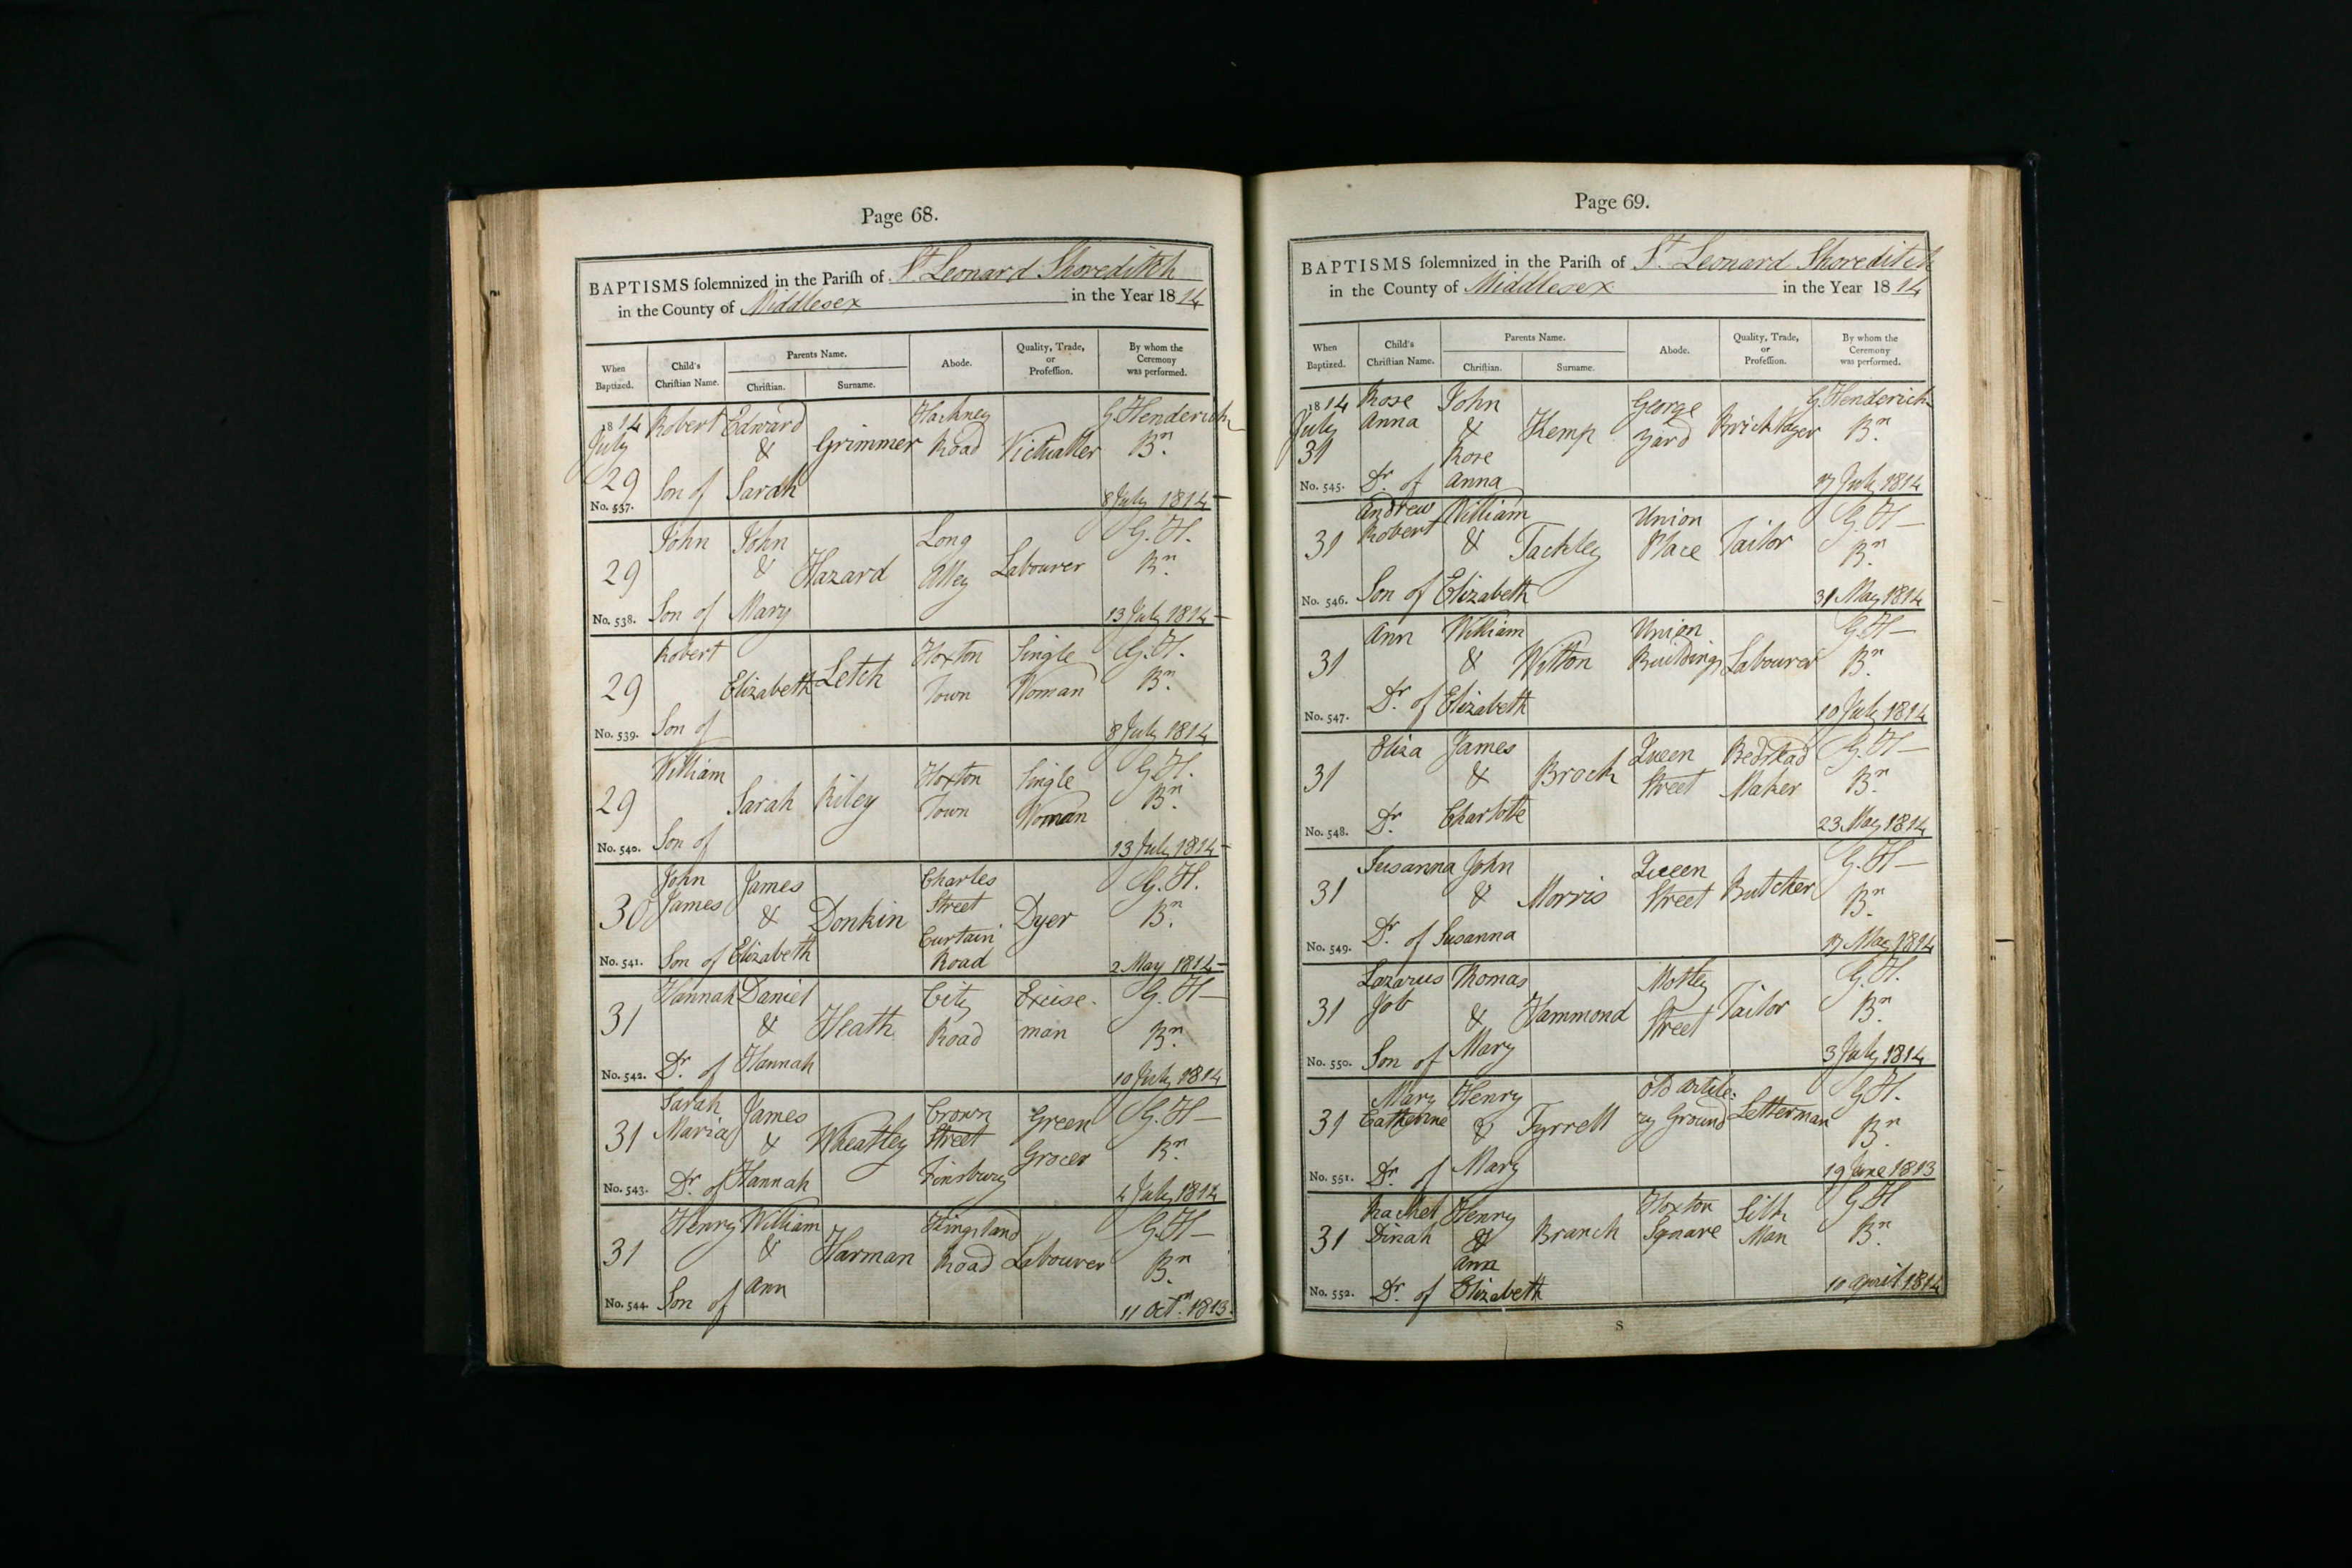 Page 68.
BAPTISMS ſolemnized in the Pariſh of St Leonard Shoreditch
in the County of Middlesex in the Year 18 14
When Baptized. Child's Chriſtian Name. Parents Name. Chriſtian. Surname. Abode. Quality, Trade, or Profeſſion. By whom the Ceremony was performed.
1814 Robert Edward Hackney G. Henderich
July & Grimmer Road Victualler Bn.
29 Son of Sarah
No. 537. 8 July 1814
John John Long G. H.
29 & Hazard Alley Labourer Bn.
No. 538. Son of Mary 13 July 1814
Robert Hoxton Single G. H.
29 Elizabeth Letch Town Woman Bn.
No. 539. Son of 8 July 1814
William Hoxton Single G. H.
29 Sarah Riley Town Woman Bn.
No. 540. Son of 13 July 1814
John James Charles G. H.
30 James & Donkin Street Dyer Bn.
Curtain
No. 541. Son of Elizabeth Road 2 May 1814
Hannah Daniel City Excise- G. H
31 & Heath Road man Bn.
No. 542. Dr. of Hannah 10 July 1814
Sarah James Crown Green G. H
31 Maria & Wheatley Street Grocer Bn.
No. 543. Dr. of Hannah Finsbury 4 July 1814
Henry William Kingsland G. H
31 & Harman Road Labourer Bn.
No. 544. Son of Ann 11 Octr. 1813.
Page 69.
BAPTISMS ſolemnized in the Pariſh of St. Leonard Shoreditch
in the County of Middlesex in the Year 18 14
When Baptized. Child's Chriſtian Name. Parents Name. Chriſtian. Surname. Abode. Quality, Trade, or Profeſſion. By whom the Ceremony was performed.
1814 Rose John George G. Henderich
July Anna & Kemp Yard Bricklayer Bn.
31 Rose
No. 545. Dr. of Anna 17 July 1814
Andrew William Union G. H
31 Robert & Tackley Place Tailor Bn.
No. 546. Son of Elizabeth 31 May 1814
Ann William Union G. H
31 & Wilton Buildings Labourer Bn.
No. 547. Dr. of Elizabeth 10 July 1814
Eliza James Queen Bedstead G. H
31 & Brock Street Maker Bn.
No. 548. Dr. Charlotte 23 May 1814
Susanna John Queen G. H
31 & Morris Street Butcher Bn.
No. 549. Dr. of Susanna 17 May 1814
Lazarus Thomas Motley G. H.
31 Job & Hammond Street Tailor Bn.
No. 550. Son of Mary 3 July 1814
Mary Henry Old Artile- G. H.
31 Catherine & Tyrrell ry Ground Letterman Bn.
No. 551. Dr. of Mary 19 June 1813
Rachel Henry Hoxton Silk G H
31 Dinah & Branch Square Man Bn.
Ann
No. 552. Dr. of Elizabeth 10 April 1814
S